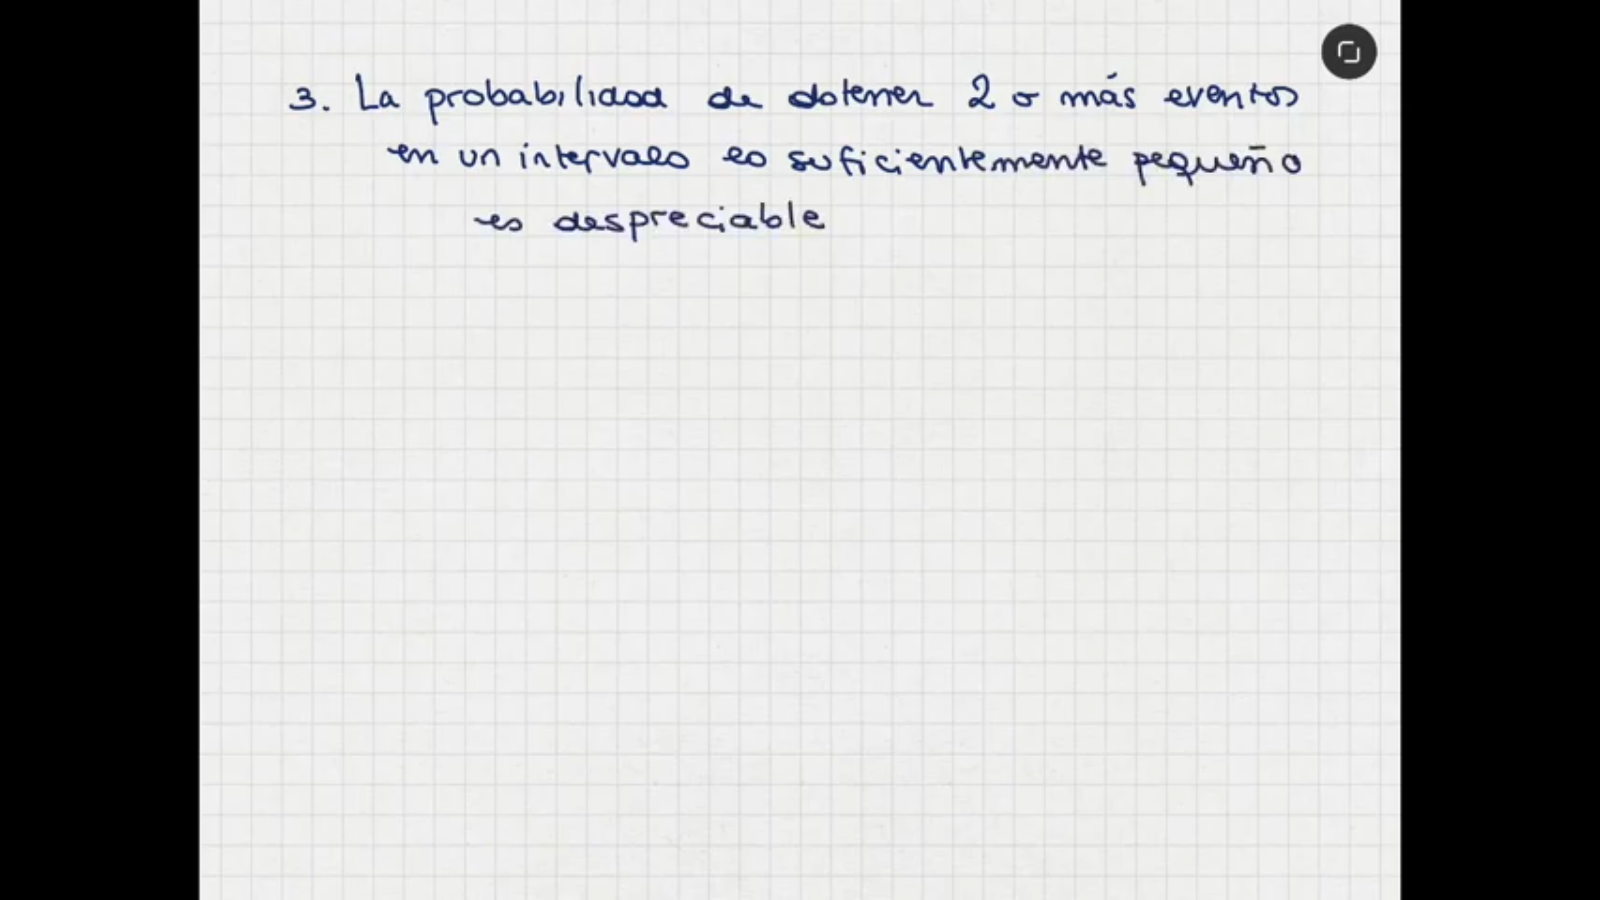 3. La probabilidad de obtener 2 o más eventos
en un intervalo lo suficientemente pequeño
es despreciable